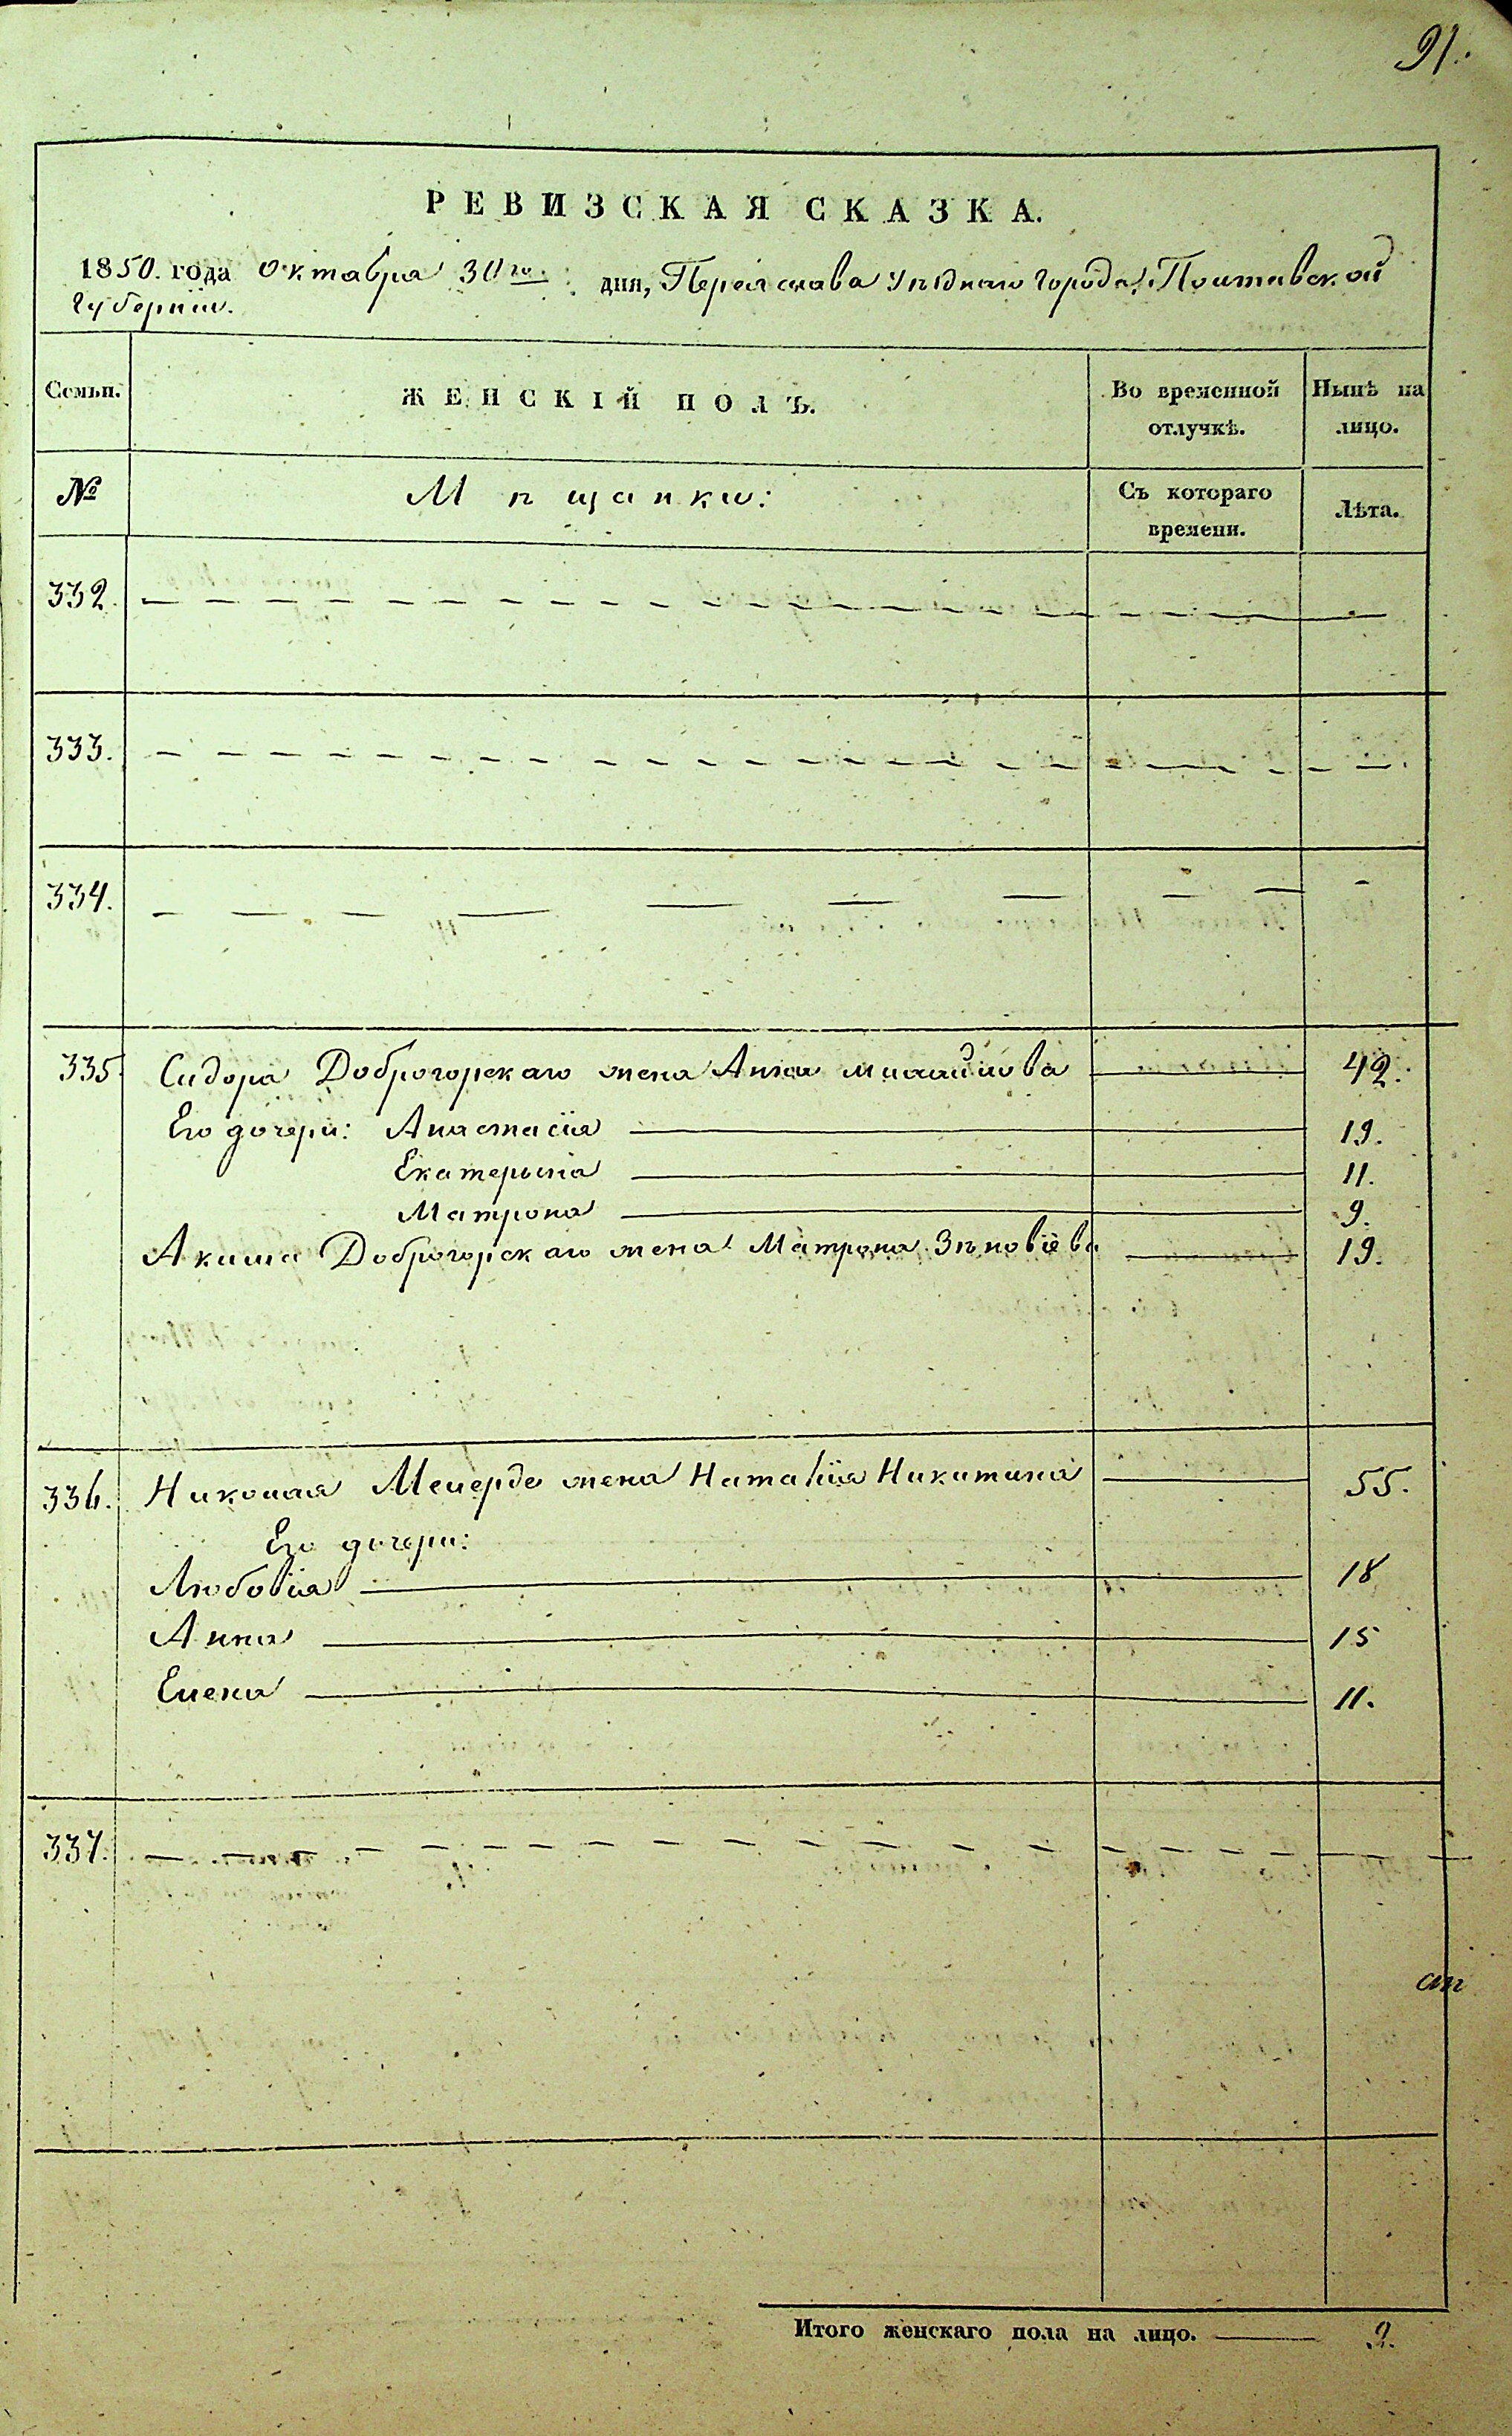 91.
РЕВИЗСКАЯ СКАЗКА.
1850. года октабра 30го дня, Переяслава Уѣзднаго города, Полтавской
губерніи.
Семьи. ЖЕНСКІЙ ПОЛЪ. Во временной отлучкѣ. Нынѣ на лицо.
№ Мѣщанки: Съ котораго времени. Лѣта.
332.
333.
334.
335. Сидора Доброгорскаго жена Анна 42.
Его дочери: Анастасія 19.
Екатерына 11.
Матрона 9.
Акима Доброгорскаго жена Матрона Зѣновіева 19.
336. Николая жена Наталія Никитина 55.
Его дочери:
Любовія 18
Анна 15
Елена 11.
337.
Итого женскаго пола на лицо. 9.